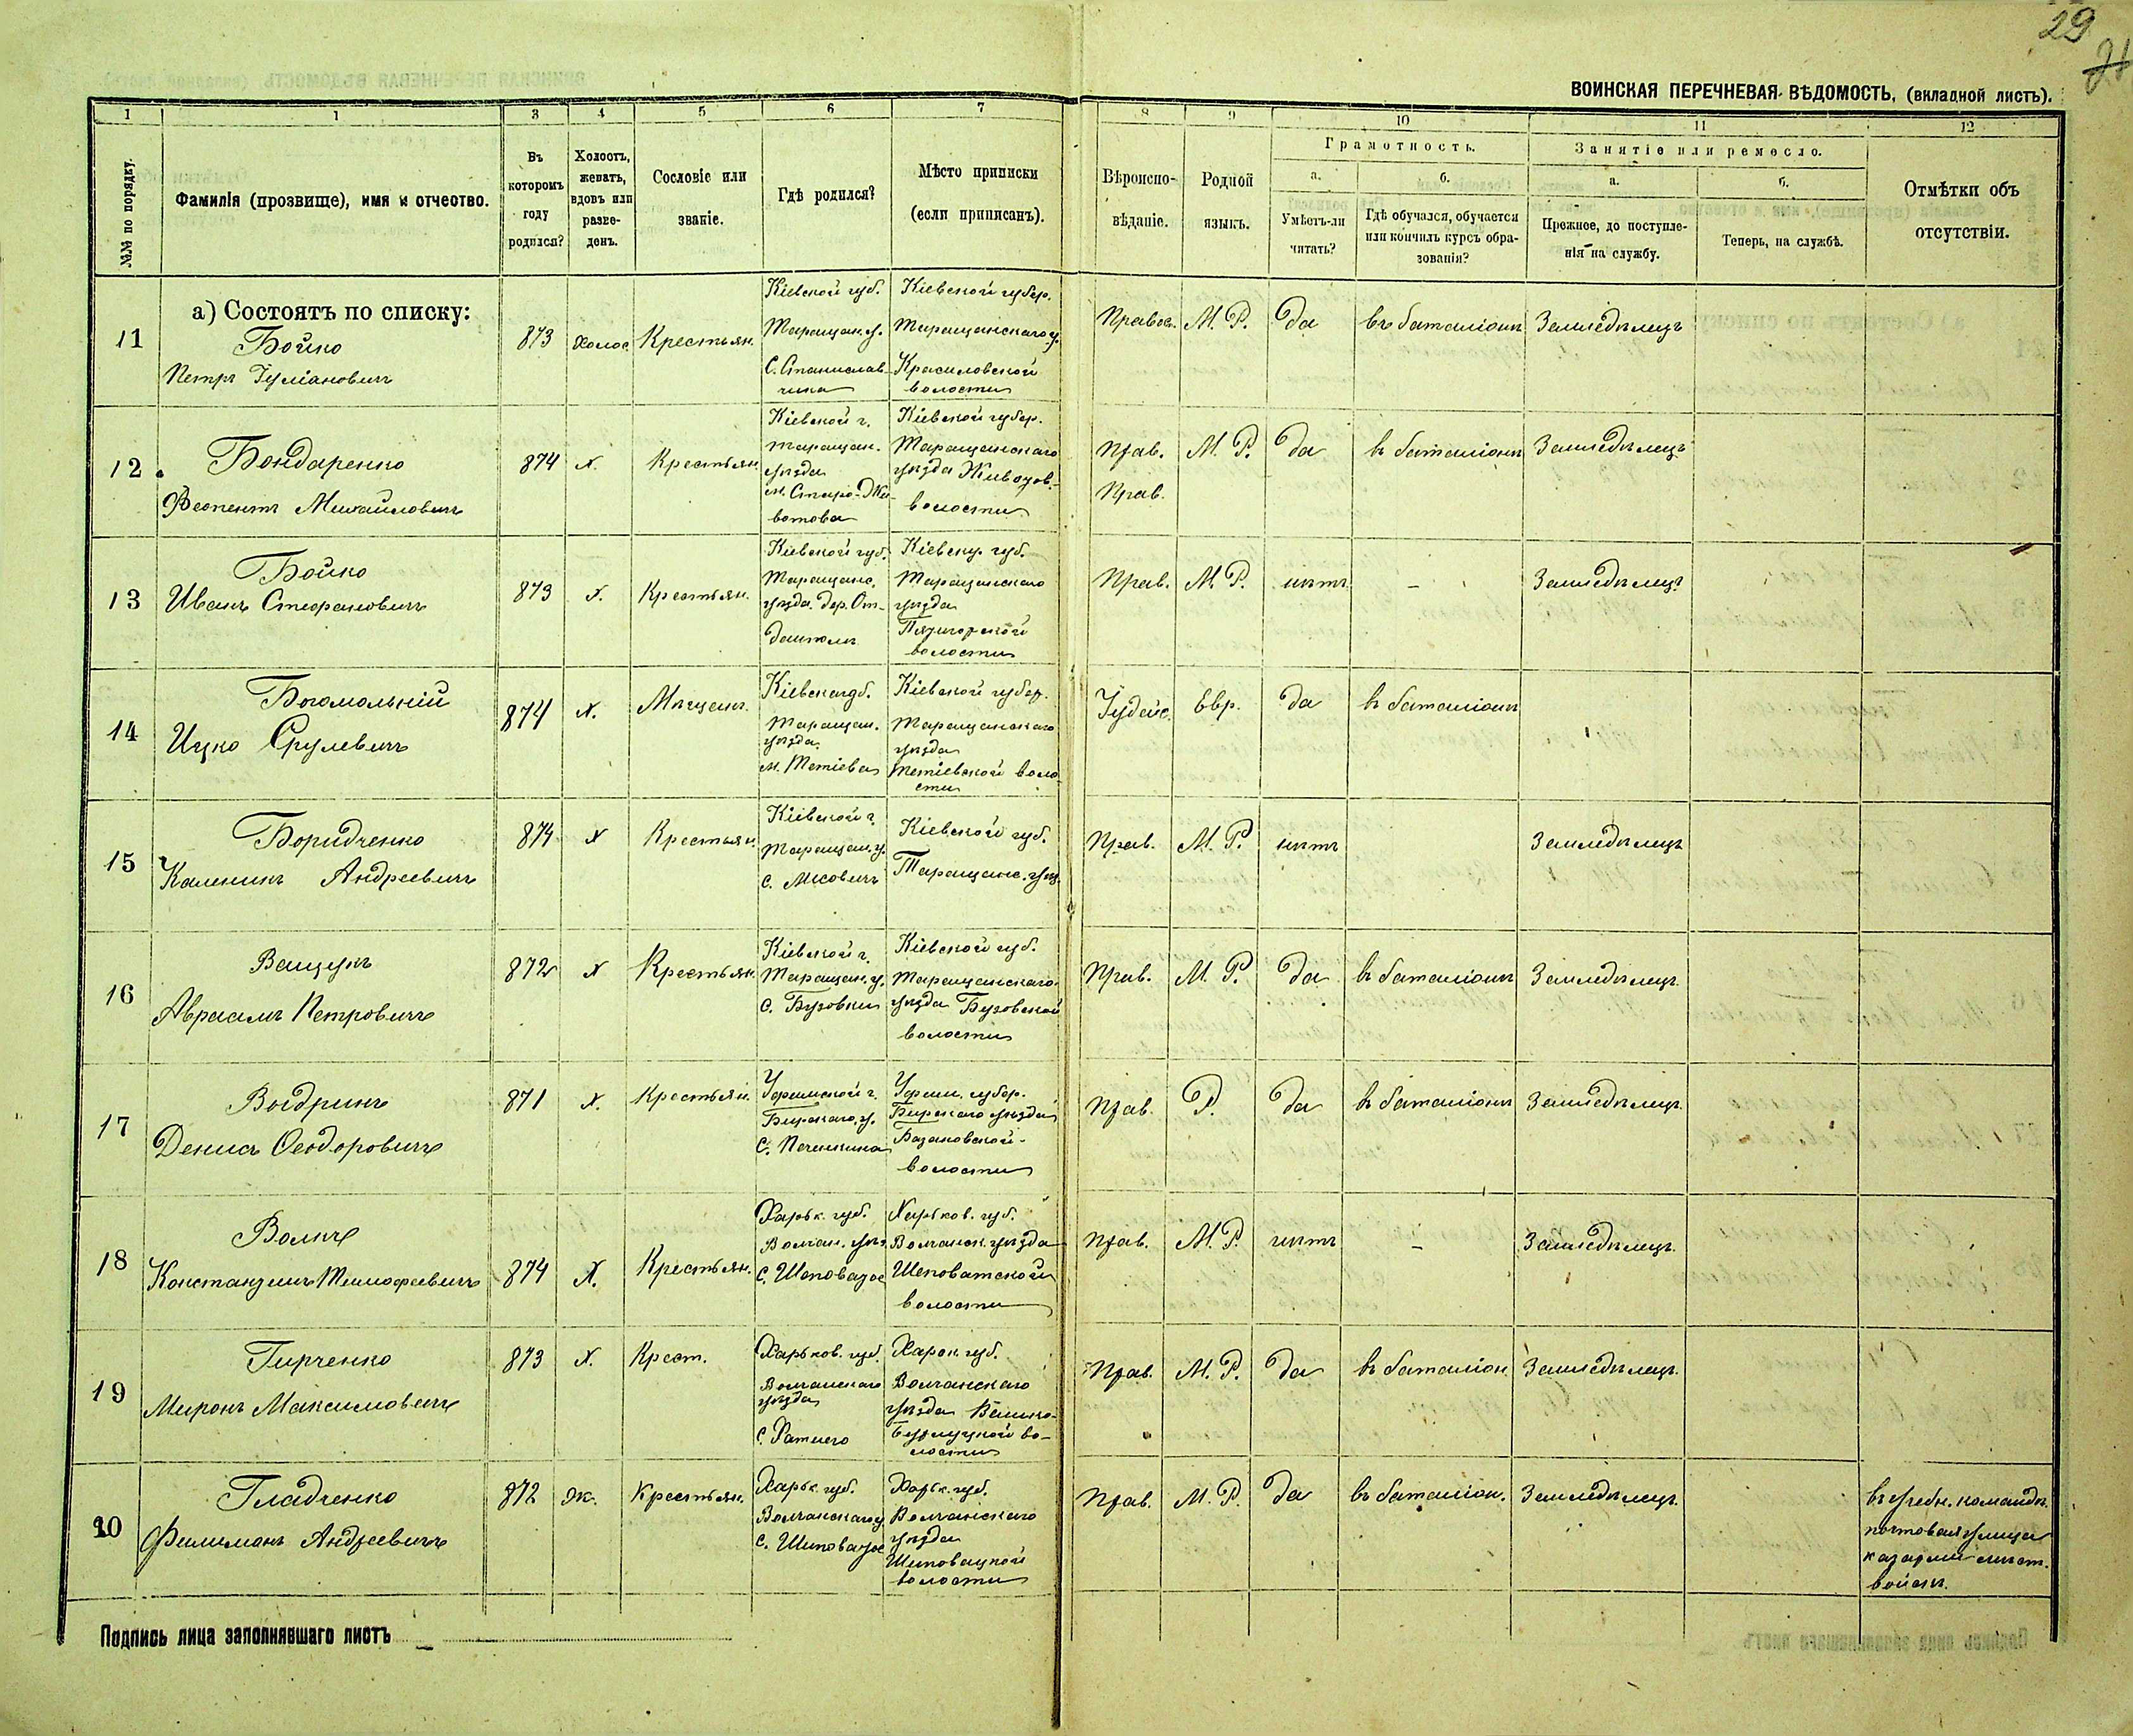 29
21
ВОИНСКАЯ ПЕРЕЧНЕВАЯ ВѢДОМОСТЬ, (вкладной листъ).
1 1 3 4 5 6 7 8 9 10 11 12
№№ по порядку.
Фамилія (прозвище), имя и отчество.
Въ которомъ году родился?
Холостъ, женатъ, вдовъ или разведенъ.
Сословіе или званіе.
Гдѣ родился?
Мѣсто приписки (если приписанъ).
Вѣроиспо-
вѣданіе.
Родной языкъ.
Грамотность.
а. Умѣетъ-ли читать?
б. Гдѣ обучался, обучается или кончилъ курсъ обра-
зованія?
Занятіе или ремесло.
а. Прежнее, до поступле-
нія на службу.
б. Теперь, на службѣ.
Отмѣтки объ отсутствіи.
а) Состоятъ по списку:
11
Бойко
Петръ Іуліановичъ
873
холос
Крестьян.
Кіевской губ.
Таращан. у.
С. Станислав-
чика
Кіевской губер.
Таращанскаго у.
Красиловской
волости
Правос.
М. Р.
да
въ баталіонѣ
Земледѣлецъ
12
Бондаренко
Феопентъ Михайловичъ
874
х.
Крестьян
Кіевской г.
Таращан.
уѣзда
м. Старо-Жи-
вотова
Кіевской губер.
Таращанскаго
уѣзда Животов.-
волости
Прав.
Прав.
М. Р.
да
въ баталіонѣ
Земледѣлецъ
13
Бойко
Иванъ Стефановичъ
873
х.
Крестьян.
Кіевской губ.
Таращанс.
уѣзда. дер.
Кіевску. губ.
Таращанскаго
уѣзда
Пятигорской
волости
Прав.
М. Р.
нѣтъ
-
Земледѣлец.
14
Богомольній
Ицко Срулевичъ
874
х.
Мѣщан.
Таращан.
уѣзда.
м. Тетіева
Кіевской губер.
Таращанскаго
уѣзда
Тетіевской воло-
сти
Іудейс.
Евр.
да
въ баталіонѣ
15
Боридченко
Каленикъ Андреевичъ
874
х
Крестьян.
Кіевской г.
Таращан. у.
с. Лисовичъ
Кіевской губ.
Таращанс. уѣз.
Прав.
М. Р.
нѣтъ
Земледѣлецъ
16
Ващукъ
Авраамъ Петровичъ
872
х
Крестьян.
Кіевской г.
Таращан. у.
с. Бузовки
Кіевской губ.
Таращанскаго
уѣзда Бузовской
волости
Прав.
М. Р.
да
въ баталіонѣ
Земледѣлец.
17
Выдринъ
Денисъ Ѳеодоровичъ
871
х.
Крестьян.
Уфимской г.
Бирскаго. у.
С. Печенкина
Уфим. губер.
Бирскаго уѣзда
Базановской-
волости
Прав.
Р.
да
въ баталіонѣ
Земледѣлец.
18
Волыч
Константинъ Тимофеевичъ
874
х.
Крестьян.
Харьк. губ.
Волчан. уѣз.
С. Шиповатое
Харьков. губ.
Волчанск. уѣзда
Шиповатской
волости
Прав.
М. Р.
нѣтъ
-
Земледѣлец.
19
Гирченко
Миронъ Максимовичъ
873
х.
Крест.
Харьков. губ.
Волчанскаго
уѣзда
С. Ратнего
Харьк. губ.
Волчанскаго
уѣзда Велико-
Бурлуцкой во-
лости
Прав.
М. Р.
да
въ баталіон.
Земледѣлец.
20
Гладченко
Филимонъ Андреевичъ
872
ж.
Крестьян.
Харьк. губ.
Волчанскаго у
с. Шиповатое
Харьк. губ.
Волчанскаго
уѣзда
Шиповацкой
волости
Прав.
М. Р.
да
въ баталіон.
Земледѣлец.
въ учебн. командѣ
почтовая улица
казармы мѣст.
войскъ.
Подпись лица заполнявшаго листъ